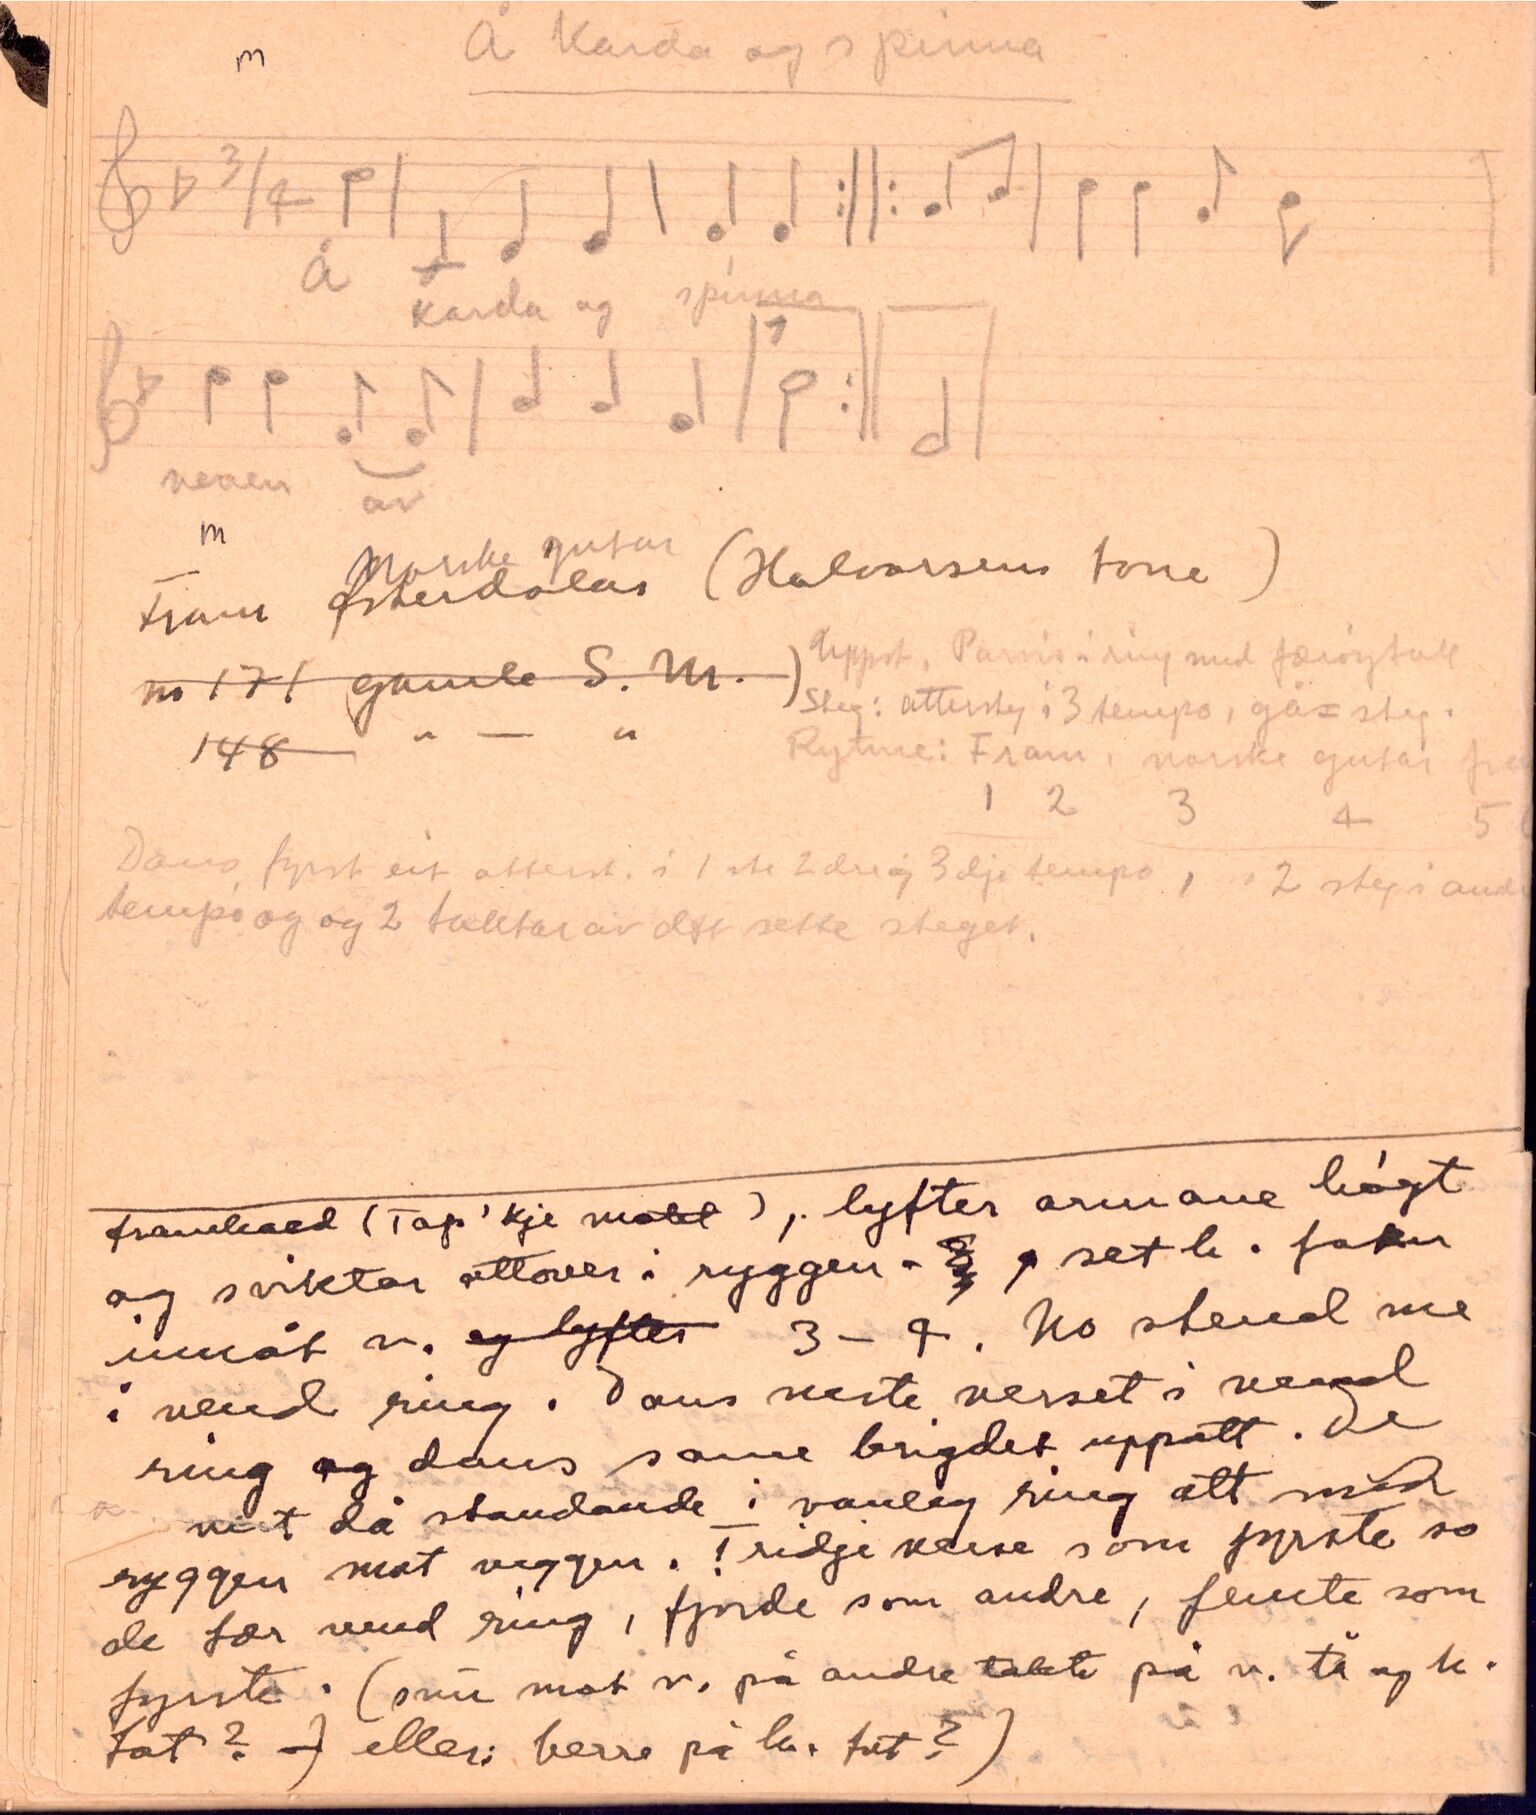 Å Karda og spinna
m
3/4
Å karda og spinna
1
veven av
m
norske gutar
Fram Østerdølar (Halvorsens tone)
no 171 gamle S. M. )
148 " — "
Uppst. Parvis i ring med færöytak
Steg: attersteg i 3 tempo, gå = steg.
Rytme: Fram, norske gutar
1 2 3 4 5
Dans fyrst eit atterst. i 1ste 2dre og 3dje tempo, 2 steg i
tempo og og 2 taktar av det sette steget.
framhand (Tap' kje ), lyfter armane högt
og sviktar attover i ryggen. set h. foten
innåt v. og lyfter 3 – 4. No stend me
i vend ring. Dans neste verset i vend
ring og dans same brigdet uppatt. De
vert då standande i vanleg ring att med
ryggen mot veggen. Tridje verse som fyrste so
de fær vend ring, fjorde som andre, femte som
fyrste. (snu mot v. på andre takte på v. tå og h.
fot? ) eller: berre på h. fot?)